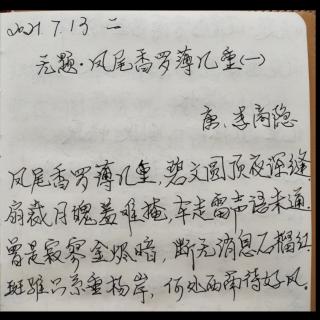 2021.7.13 二
无题·凤尾香罗薄几重(一)
唐、李商隐
凤尾香罗薄几重,碧文圆顶夜深缝.
扇裁月魄羞难掩,车走雷声语未通.
曾是寂寥金烬暗,断无消息石榴红.
斑骓只系垂杨岸,何处西南待好风.